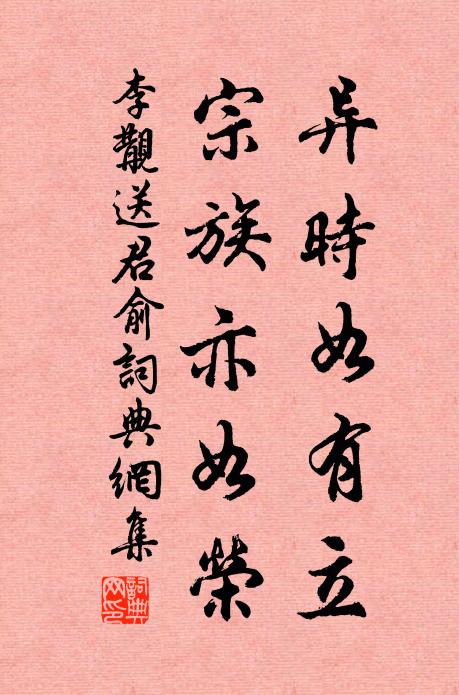 异時如有立
宗族亦如榮
李覯送君俞詞典網集
詞典網印